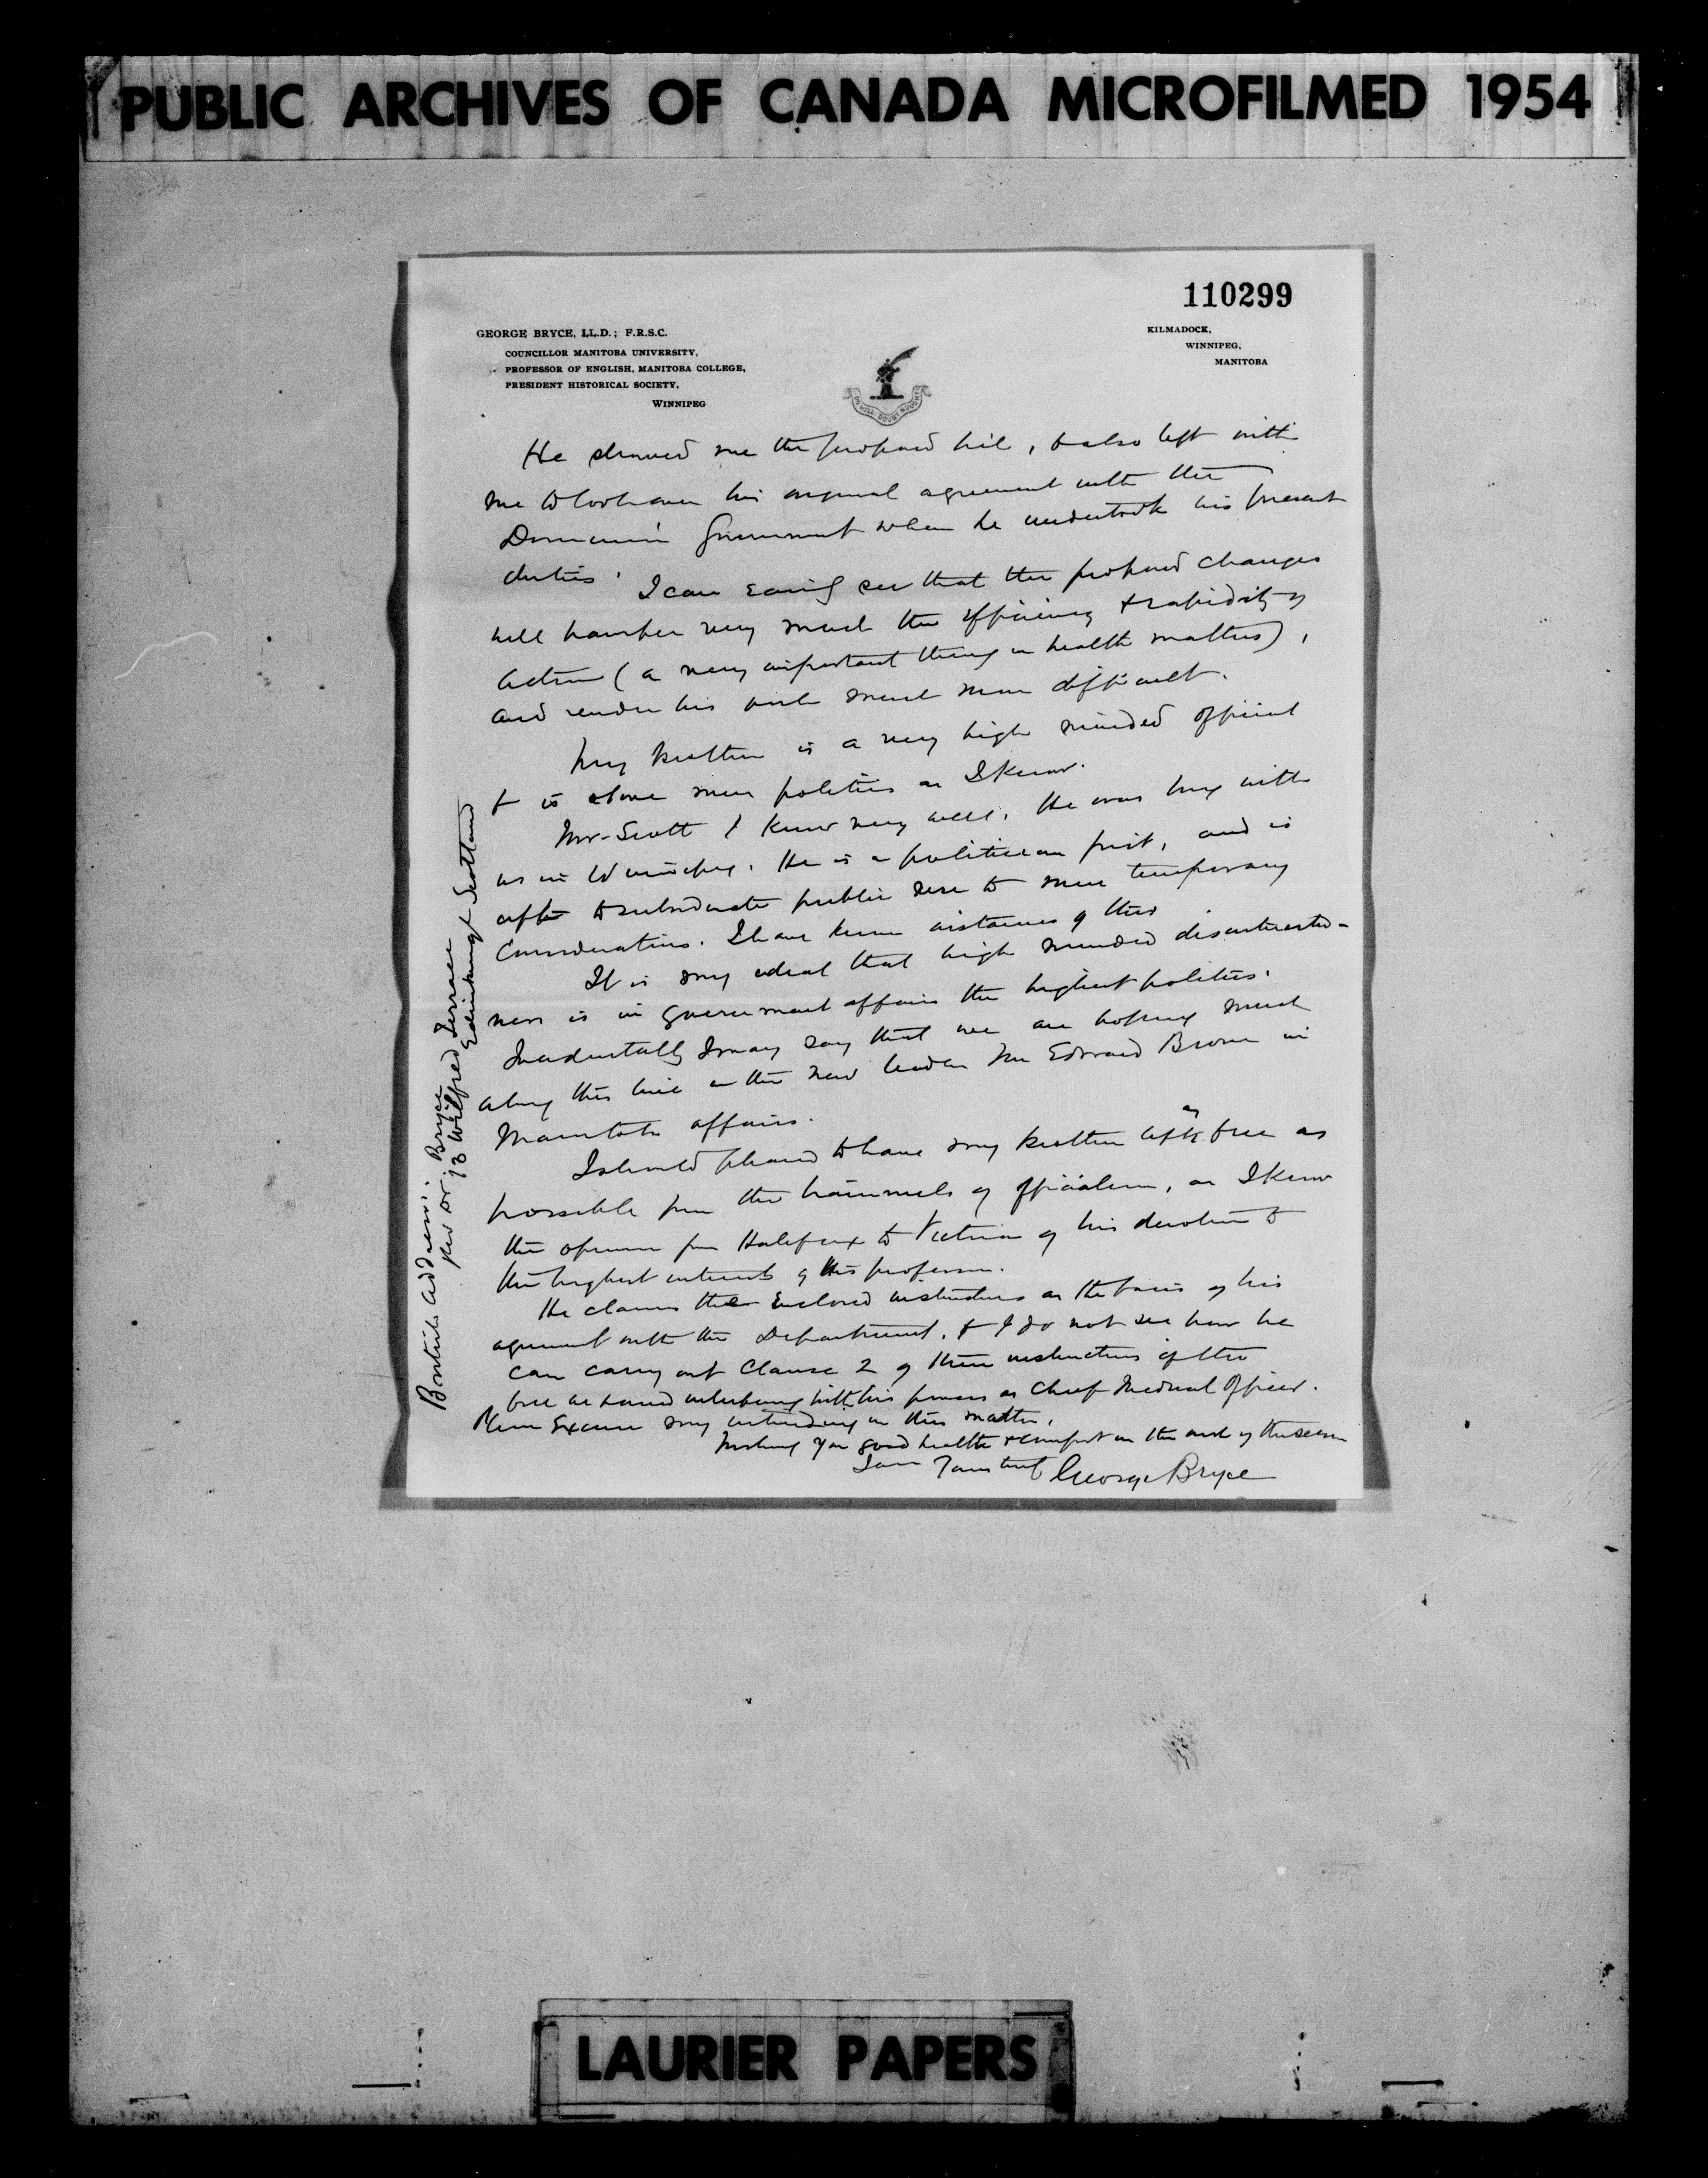 PUBLIC ARCHIVES OF CANADA MICROFILMED 1954
110299
GEORGE BRYCE, LL.D.; F.R.S.C.
COUNCILLOR MANITOBA UNIVERSITY,
PROFESSOR OF ENGLISH, MANITOBA COLLEGE,
PRESIDENT HISTORICAL SOCIETY,
WINNIPEG
KILMADOCK,
WINNIPEG,
MANITOBA
DO WELL DOUBT NOUGHT
He showed me the proposed bill, & also left with
me to look over his original agreement with the
Dominion Government when he undertook his present
duties. I can easily see that the proposed changes
will hamper very much the efficiency & rapidity of
action (a very important thing in health matters),
and render his work much more difficult.
My brother is a very high minded official
& is above mere politics as I know.
Mr. Scott I know very well. He was long with
us in Winnipeg. He is a politician first, and is
apt to subordinate public use to mere temporary
considerations. I have known instances of this
It is my ideal that high minded disinterested-
ness is in government affairs the highest politics.
Incidentally I may say that we are hoping much
along this line in the new leader Mr Edward Brown in
Manitoba affairs.
I should pleased to have my brother left as free as
possible from the trammels of officialism, as I know
the opinion from Halifax to Victoria of his devotion to
the highest interests of his profession.
He claims the enclosed instructions as the basis of his
agreement with the Department, & I do not see how he
can carry out Clause 2 of these instructions if the
bill be passed interfering with his powers as Chief Medical Officer.
Please excuse my intruding in this matter.
Wishing you good health & comfort in the work of the session
I am Yours truly George Bryce
British Address:
Rev Dr. Bryce
13 Wilfred Terrace
Edinburgh Scotland
LAURIER PAPERS